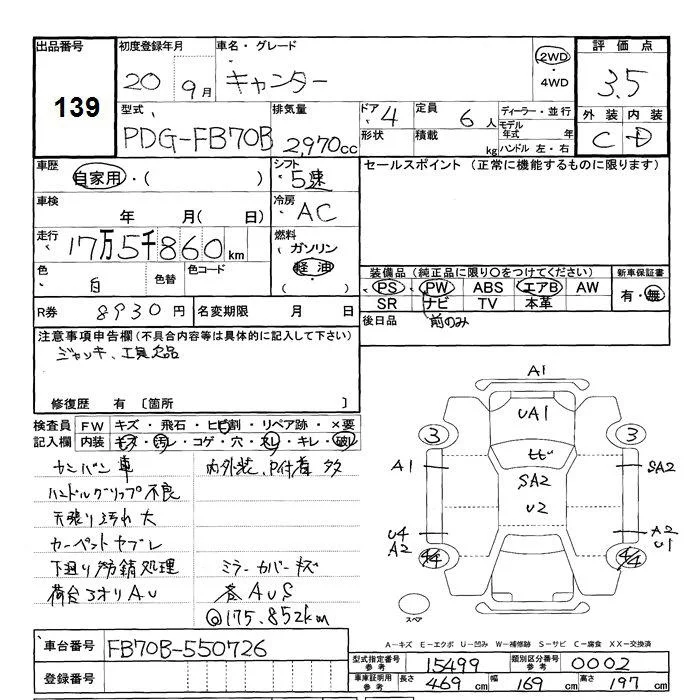 出品番号 139
初度登録年月 20年 9月
車名・グレード キャンター
2WD・4WD
評価点 3.5
外装 C 内装 D
型式 PDG-FB70B
排気量 2,970cc
ドア 4
形状
定員 6人
積載 kg
ディーラー・並行
モデル年式 年
ハンドル 左・右
車歴 自家用・( )
シフト 5速
セールスポイント (正常に機能するものに限ります)
車検 年 月( 日)
冷房 AC
走行 17万5千860km
燃料 ガソリン 軽油 ( )
色 白 色替 色コード
装備品 (純正品に限り○をつけてください)
PS PW ABS エアB AW
SR ナビ TV 本革
新車保証書 有・無
R券 8930円
名変期限 月 日
後日品 前のみ
注意事項申告欄 (不具合内容等は具体的に記入して下さい)
ジャッキ、工具欠品
修復歴 有 〔箇所 〕
検査員記入欄
FW キズ・飛石・ヒビ割・リペア跡・×要
内装 キズ・汚レ・コゲ・穴・スレ・キレ・破レ
カンバン車
ハンドルグリップ不良
天張り汚れ大
カーペットヤブレ
下廻り防錆処理
荷台アオリAU
内外装、P付着多
ミラーカバーキズ
AUS
@175,852km
A1
UA1
3 3
A1 ヒビ SA2
SA2
U2
U4 A2
A2 U1
4/4 4/4
スペア
A－キズ E－エクボ U－凹み W－補修跡 S－サビ C－腐食 XX－交換済
車台番号 FB70B-550726
登録番号
型式指定番号 参考 15499
類別区分番号 参考 0002
車庫証明用 参考 長さ 469cm 幅 169cm 高さ 197cm